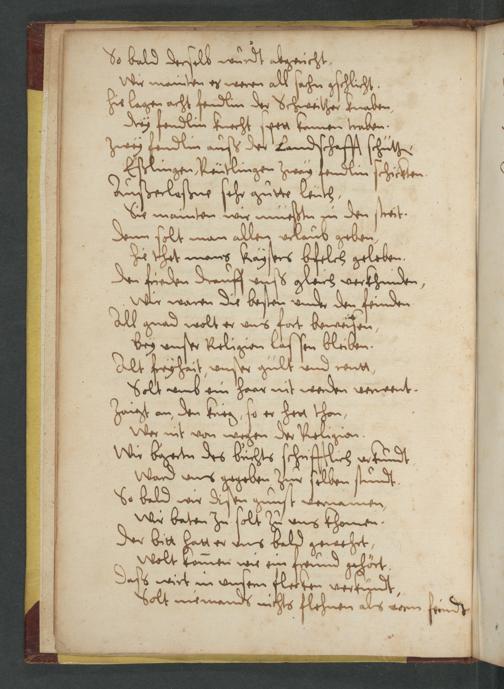 So bald derselb wurdt abgericht.
Wir mainten es weren all sach gschlicht.
Hie lagen acht fendlin der Schweitzer knaben,
Drey fendlin knecht kamen traben.
Zway fendlin auss der Landschafft
Esslingen, Reutlingen zway fendlin schickten.
sehr gutte leuth,
Sie mainten wir müessten in den streit.
Denn solt man allen urlaub geben,
Hie thet mans kaysers befelch geleben.
Den frieden drauff uns gleich verkhunden,
Wir waren die besten under den feinden
All gnad wolt er uns fort beweisen,
Bey unser Religion lassen bleiben.
Alt freyhait, unser gült und rennt,
Solt umb ein haar nit werden verwent.
Zaigt an, den krieg, so er hett thon,
Wer nit von wegen der Religion.
Wir begerten des berichts schrifftlich urkundt
Ward uns gegeben zur selben stundt.
So bald wir disen gunst vernamen,
Wir baten zu solt zu uns khomen.
Der bitt hatt er uns bald gewehrt,
Wolt komen wie ein freund gehört.
Dass wirt in unsern flecken verkündt,
Solt niemands nichts flehnen als vorm feindt